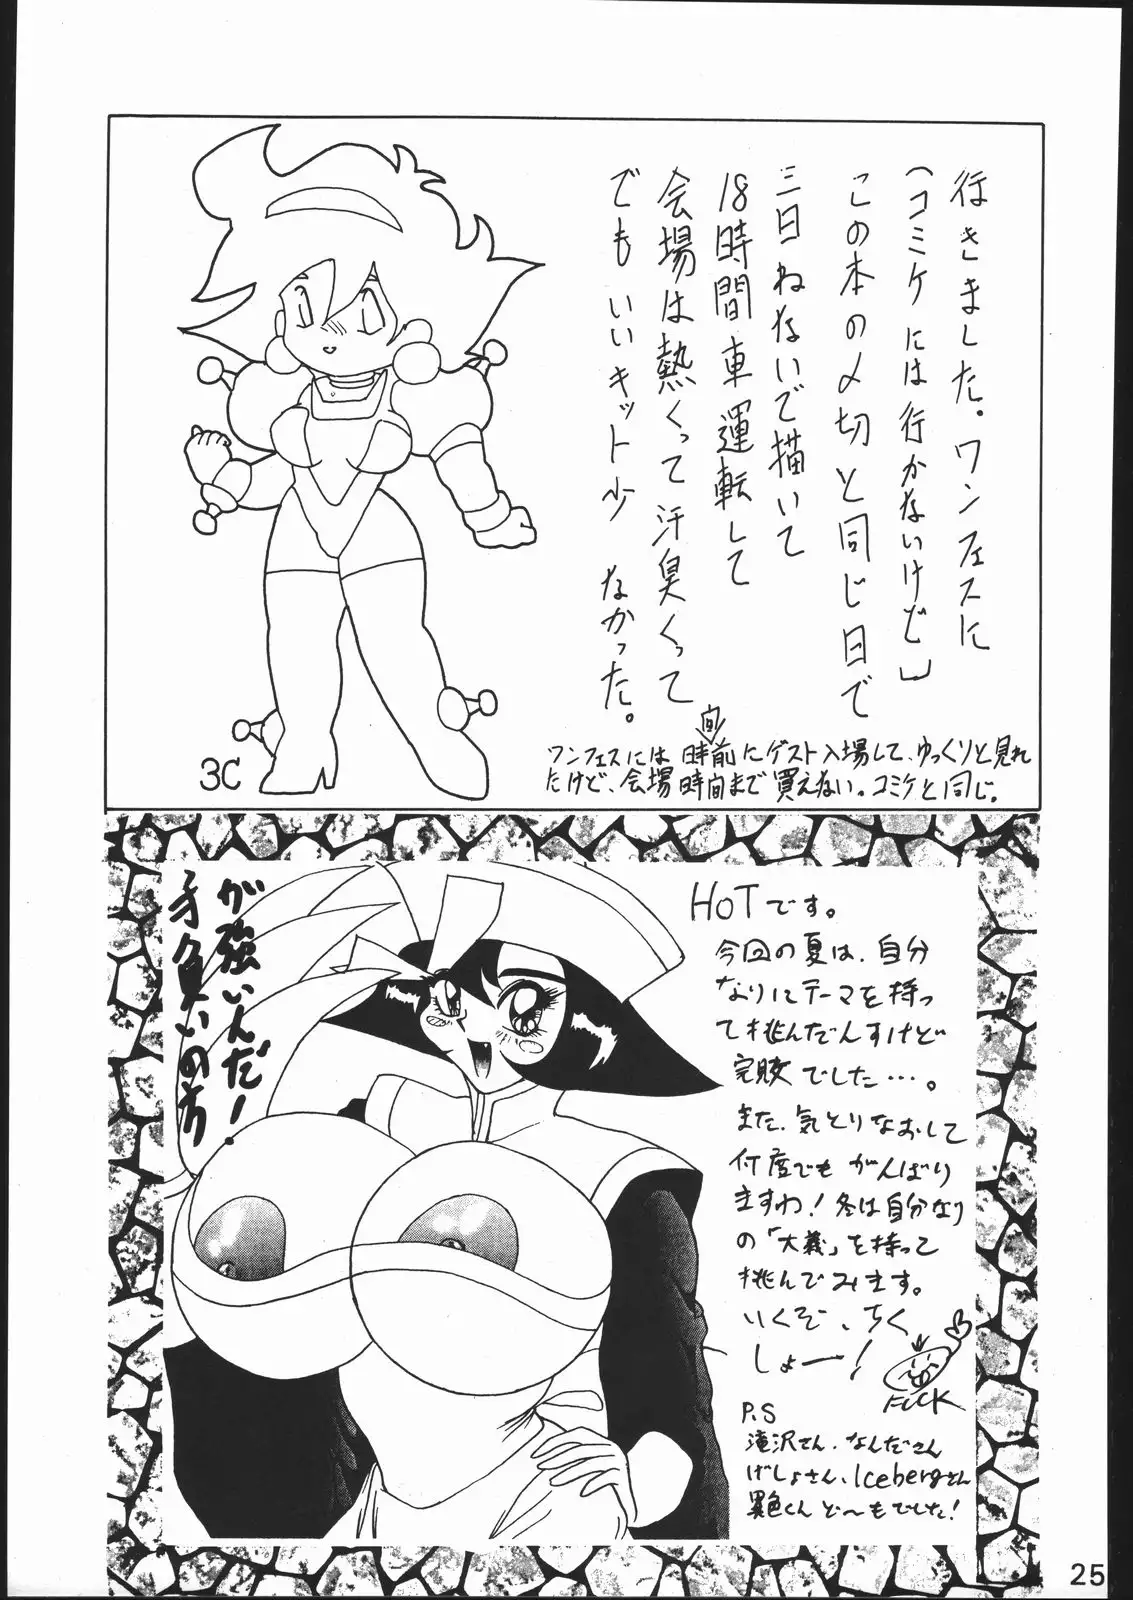 行きました。ワンフェスに
(コミケには行かないけど)
この本の〆切と同じ日で
三日ねないで描いて
18時間車運転して
会場は熱くって汗臭くって
でもいいキット少なかった。
ワンフェスには時間前にゲスト入場して、ゆっくりと見れ
たけど、会場時間まで買えない。コミケと同じ。
3C
が強いんだ!
才久負いの方
HOTです。
今回の夏は、自分
なりにテーマを持っ
て挑んだんすけど
完敗でした…。
また、気とりなおして
何度でもがんばり
ますわ!冬は自分なり
の「大義」を持って
挑んでみます。
いくぞ、ちく
しょー!
FUCK
P.S
滝沢さん、なんださん
げしょさん、Icebergさん
異色くんど〜もでした!
25